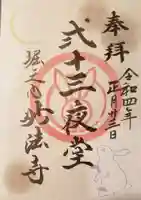 奉拝
令和四年
正月廿三日
弍十三夜堂
堀之内
妙法寺